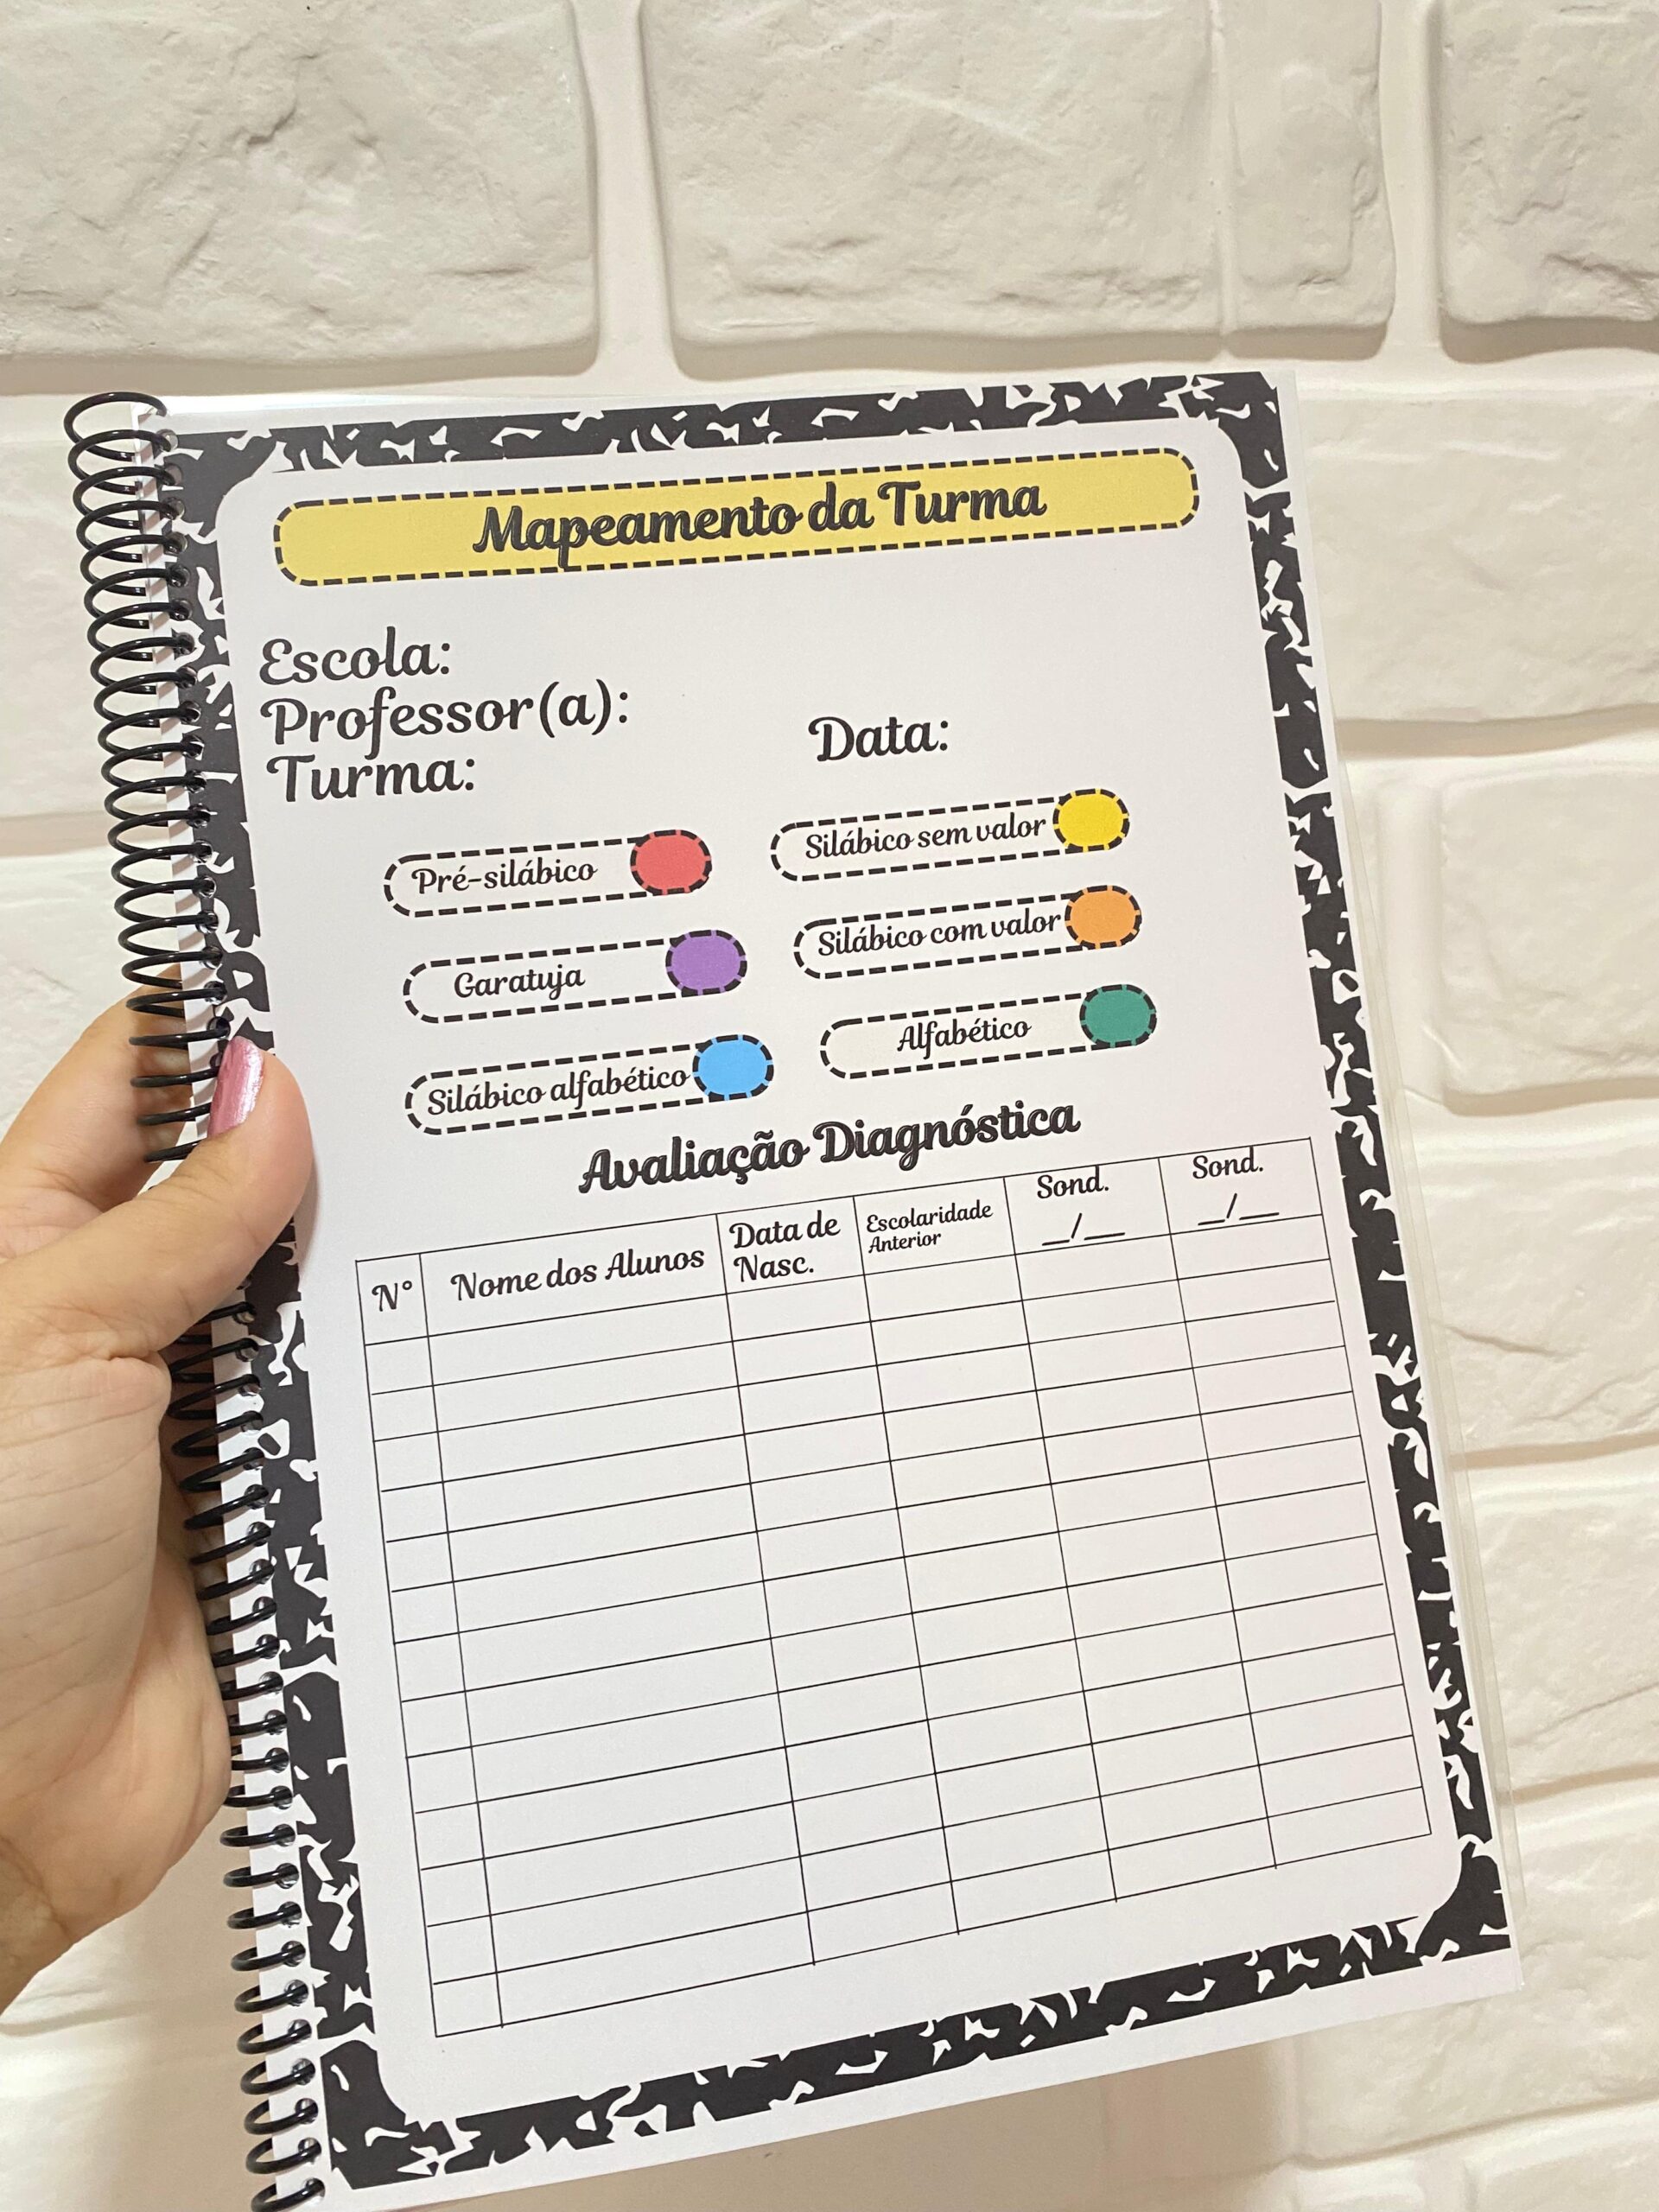 Mapeamento da Turma
Escola:
Professor(a):
Turma:
Data:
Pré-silábico
Silábico sem valor
Garatuja
Silábico com valor
Silábico alfabético
Alfabético
Avaliação Diagnóstica
N°
Nome dos Alunos
Data de
Nasc.
Escolaridade
Anterior
Sond.
__/__
Sond.
__/__